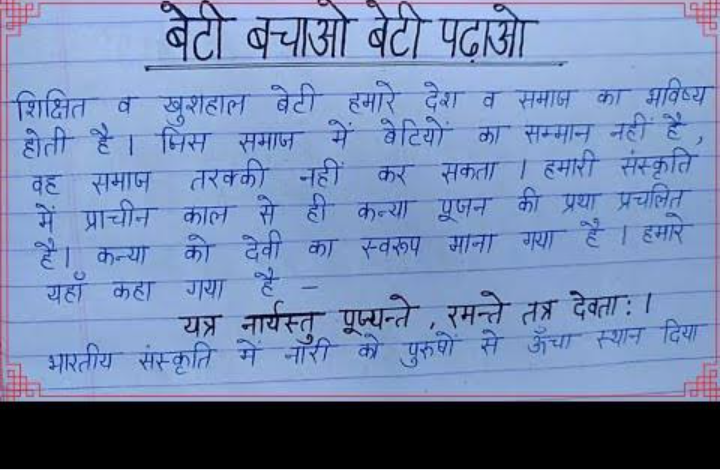 बेटी बचाओ बेटी पढ़ाओ
शिक्षित व खुशहाल बेटी हमारे देश व समाज का भविष्य
होती है। जिस समाज में बेटियों का सम्मान नहीं है,
वह समाज तरक्की नहीं कर सकता । हमारी संस्कृति
में प्राचीन काल से ही कन्या पूजन की प्रथा प्रचलित
है। कन्या को देवी का स्वरूप माना गया है । हमारे
यहाँ कहा गया है –
यत्र नार्यस्तु पूज्यन्ते , रमन्ते तत्र देवताः ।
भारतीय संस्कृति में नारी को पुरुषों से ऊँचा स्थान दिया